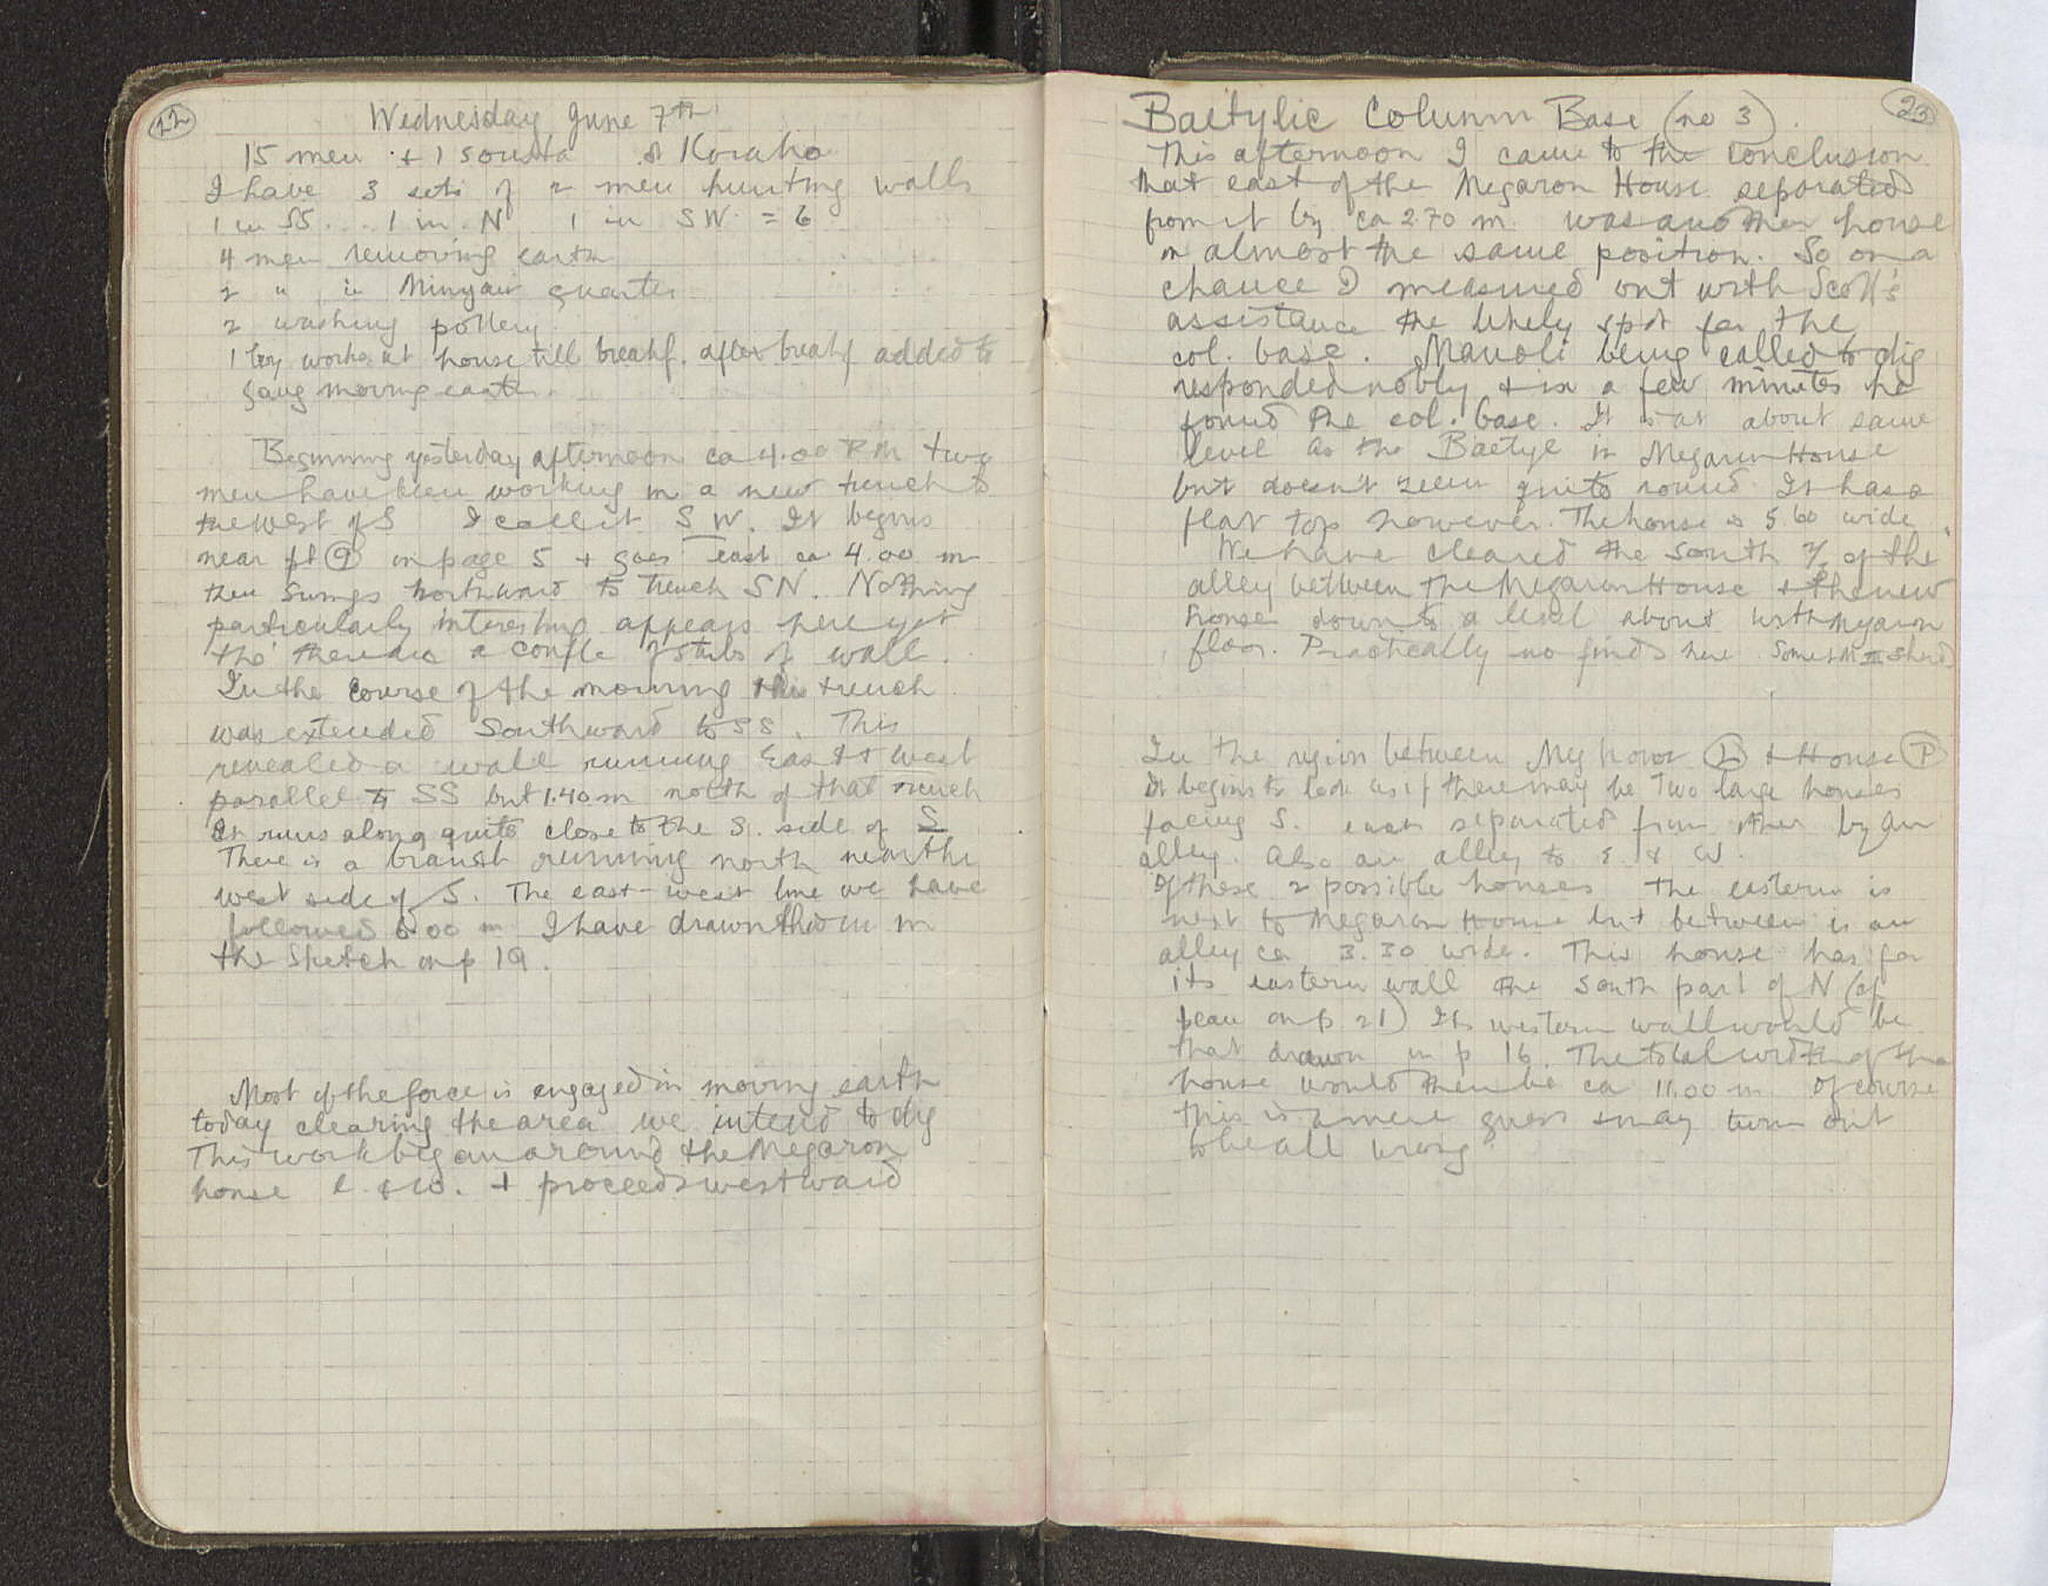 22
Wednesday June 7th
15 men + 1 sousta at Korako
I have 3 sets of 2 men hunting walls
1 in SS... 1 in N 1 in SW = 6
4 men removing earth
2 " in Minyan quarter
2 washing pottery
1 boy works at house till breakf. after breakf added to
gang moving earth.
Beginning yesterday afternoon ca 4.00 P.M. two
men have been working in a new trench to
the west of S I call it SW. It begins
near pt 9 on page 5 + goes east ca 4.00 m
then swings northward to trench SN. Nothing
particularly interesting appears here yet
tho' there are a couple of stubs of wall.
In the course of the morning this trench
was extended southward to SS. This
revealed a wall running East + west
parallel to SS but 1.40 m north of that trench
It runs along quite close to the S. side of S
There is a branch running north near the
west side of S. The east-west line we have
followed 6.00 m I have drawn this in in
the sketch on p 19.
Most of the force is engaged in moving earth
today clearing the area we intend to dig
This work began around the Megaron
house E. + W. + proceeds westward
23
Baetylic Column Base (no 3).
This afternoon I came to the conclusion
that east of the Megaron House separated
from it by ca 2.70 m. was another house
in almost the same position. So on a
chance I measured out with Scott's
assistance the likely spot for the
col. base. Manoli being called to dig
responded nobly + in a few minutes he
found the col. base. It is at about same
level as the Baetyl in Megaron House
but doesn't seem quite round. It has a
flat top however. The house is 5.60 wide.
We have cleared the south ½ of the
alley between the Megaron House + the new
house down to a level about with Megaron
floor. Practically no finds here Some LM III sherds
In the region between Meg house L + House P
it begins to look as if there may be two large houses
facing S. each separated from other by an
alley. Also an alley to E. & W.
Of these 2 possible houses the eastern is
next to Megaron House but between is an
alley ca 3.30 wide. This house has for
its eastern wall the south part of N (cf
plan on p 21) Its western wall would be
that drawn in p 16. The total width of the
house would then be ca 11.00 m Of course
this is a mere guess + may turn out
to be all wrong